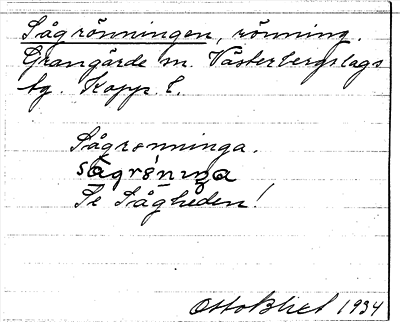 Sågrönningen, rönning.
Grangärde sn. Västerbergslags
tg. Kopp. l.
Sågrønninga.
Se Sågheden!
Otto Blixt 1934